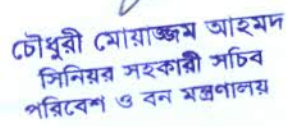 চৌধুরী মোয়াজ্জম আহমদ
সিনিয়র সহকারী সচিব
পরিবেশ ও বন মন্ত্রণালয়